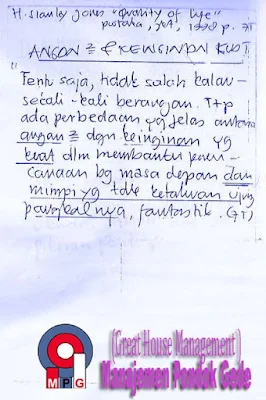 H. Stanley Jones "Quality of life"
pustaka, 1998 p. 71
ANGAN ² & KEINGINAN KUAT
"Tentu saja, tidak salah kalau
sekali-kali berangan. Ttp
ada perbedaan yg jelas antara
angan ² dgn keinginan yg
kuat dlm membantu peren-
canaan bg masa depan dan
mimpi yg tdk ketahuan ujung
pangkalnya, fantastik. (GT)
MPG
(Great House Management)
Manajemen Pondok Gede